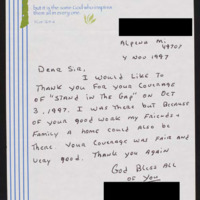 but it is the same God who inspires
them all in every one.
Alpena M.
49707
4 Nov 1997
Dear Sir,
I would like to
thank you for your coverage
of "Stand in the Gap" on Oct
3, 1997. I was there but because
of your good work my friends &
family a home could also be
there. Your coverage was fair and
very good. Thank you again
God Bless All
of you